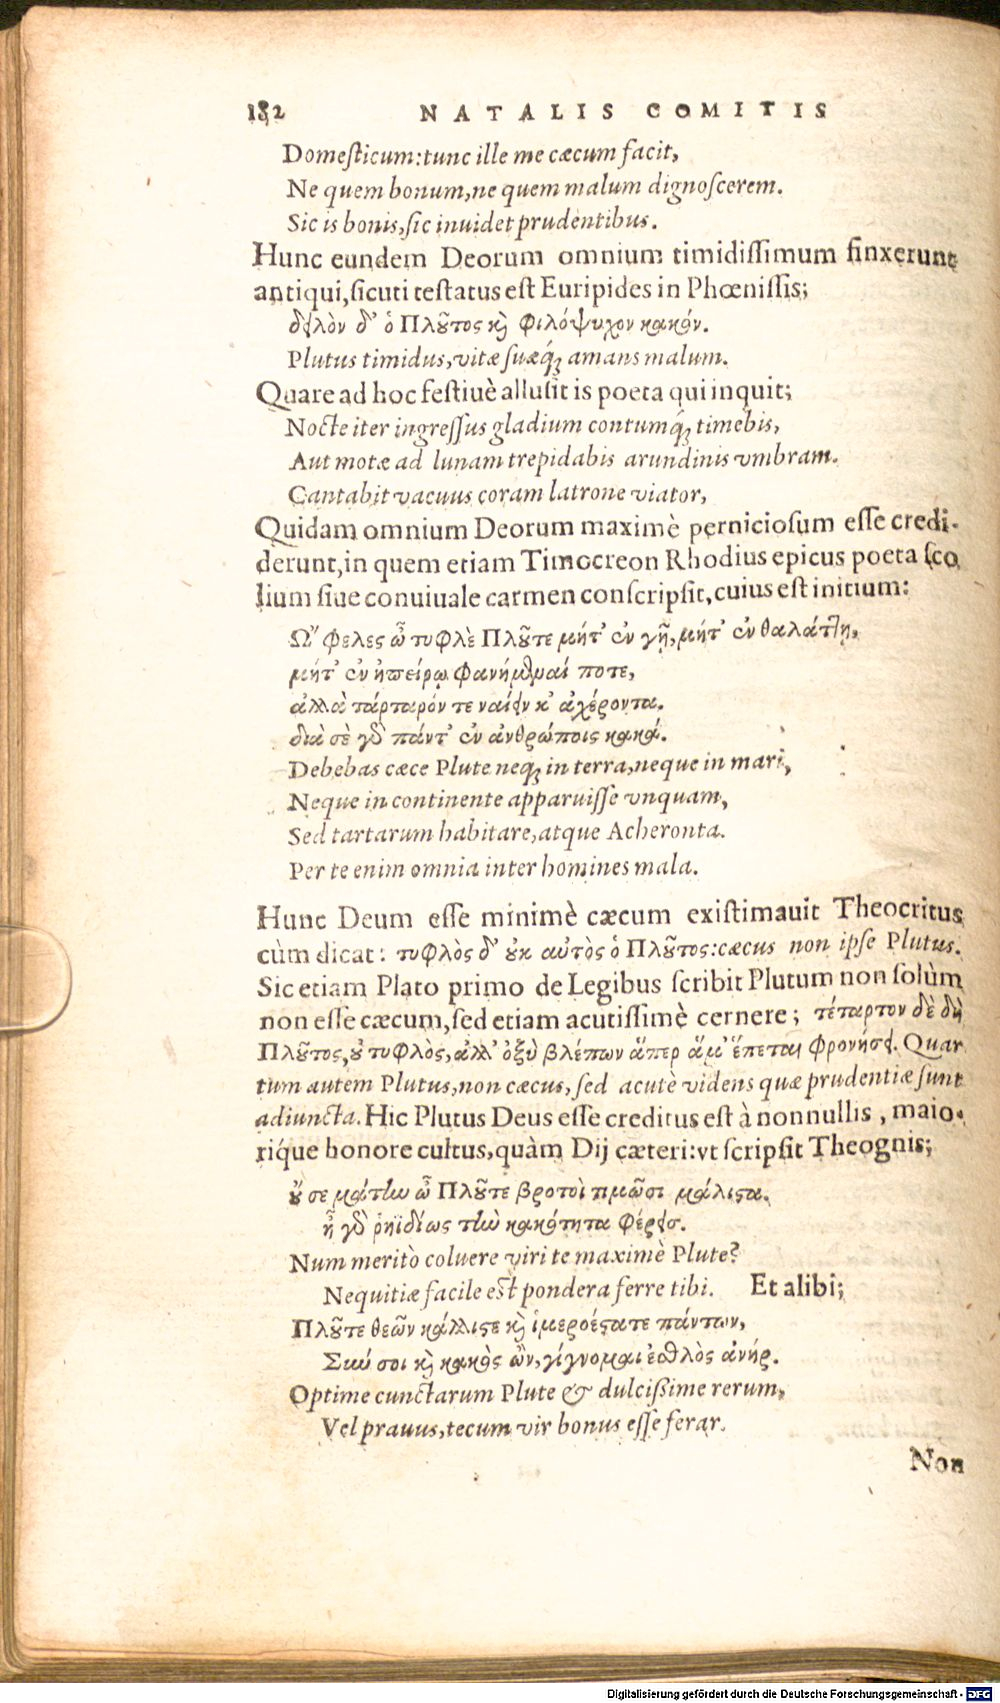 182 NATALIS COMITIS
Domesticum: tunc ille me cæcum facit,
Ne quem bonum, ne quem malum dignoscerem.
Sic is bonis, sic inuidet prudentibus.
Hunc eundem Deorum omnium timidissimum finxerunt
antiqui, sicuti testatus est Euripides in Phœnissis;
δειλὸν δ' ὁ Πλοῦτος καὶ φιλόψυχον κακόν.
Plutus timidus, vitæ suæq́; amans malum.
Quare ad hoc festiuè allusit is poeta qui inquit;
Nocte iter ingressus gladium contumq́; timebis,
Aut motæ ad lunam trepidabis arundinis vmbram.
Cantabit vacuus coram latrone viator,
Quidam omnium Deorum maximè perniciosum esse credi-
derunt, in quem etiam Timocreon Rhodius epicus poeta sco
lium siue conuiuale carmen conscripsit, cuius est initium:
Ὤφελες ὦ τυφλὲ Πλοῦτε μήτ' ἐν γῇ, μήτ' ἐν θαλάττῃ,
μήτ' ἐν ἠπείρῳ φανήμεναί ποτε,
ἀλλὰ τάρταρόν τε ναίειν κ' ἀχέροντα.
διὰ σὲ γὰρ πάντ' ἐν ἀνθρώποις κακά.
Debebas cæce Plute neq; in terra, neque in mari,
Neque in continente apparuisse vnquam,
Sed tartarum habitare, atque Acheronta.
Per te enim omnia inter homines mala.
Hunc Deum esse minimè cæcum existimauit Theocritus
cùm dicat: τυφλὸς δ' οὐκ αὐτὸς ὁ Πλοῦτος: cæcus non ipse Plutus.
Sic etiam Plato primo de Legibus scribit Plutum non solùm
non esse cæcum, sed etiam acutissimè cernere; τέταρτον δὲ δὴ
Πλοῦτος, οὐ τυφλὸς, ἀλλ' ὀξὺ βλέπων ἅπερ ἅμ' ἕπεται φρονήσει. Quar
tum autem Plutus, non cæcus, sed acutè videns quæ prudentiæ sunt
adiuncta. Hic Plutus Deus esse creditus est à nonnullis, maio-
ríque honore cultus, quàm Dij cæteri: vt scripsit Theognis;
οὔ σε μάτην ὦ Πλοῦτε βροτοὶ τιμῶσι μάλιστα.
ἦ γὰρ ῥηϊδίως τὴν κακότητα φέρεις.
Num meritò coluere viri te maximè Plute?
Nequitiæ facile est pondera ferre tibi. Et alibi;
Πλοῦτε θεῶν κάλλιστε καὶ ἱμεροέστατε πάντων,
Σὺν σοὶ καὶ κακὸς ὢν, γίγνομαι ἐσθλὸς ἀνήρ.
Optime cunctarum Plute & dulcissime rerum,
Vel prauus, tecum vir bonus esse ferar.
Non
Digitalisierung gefördert durch die Deutsche Forschungsgemeinschaft - DFG